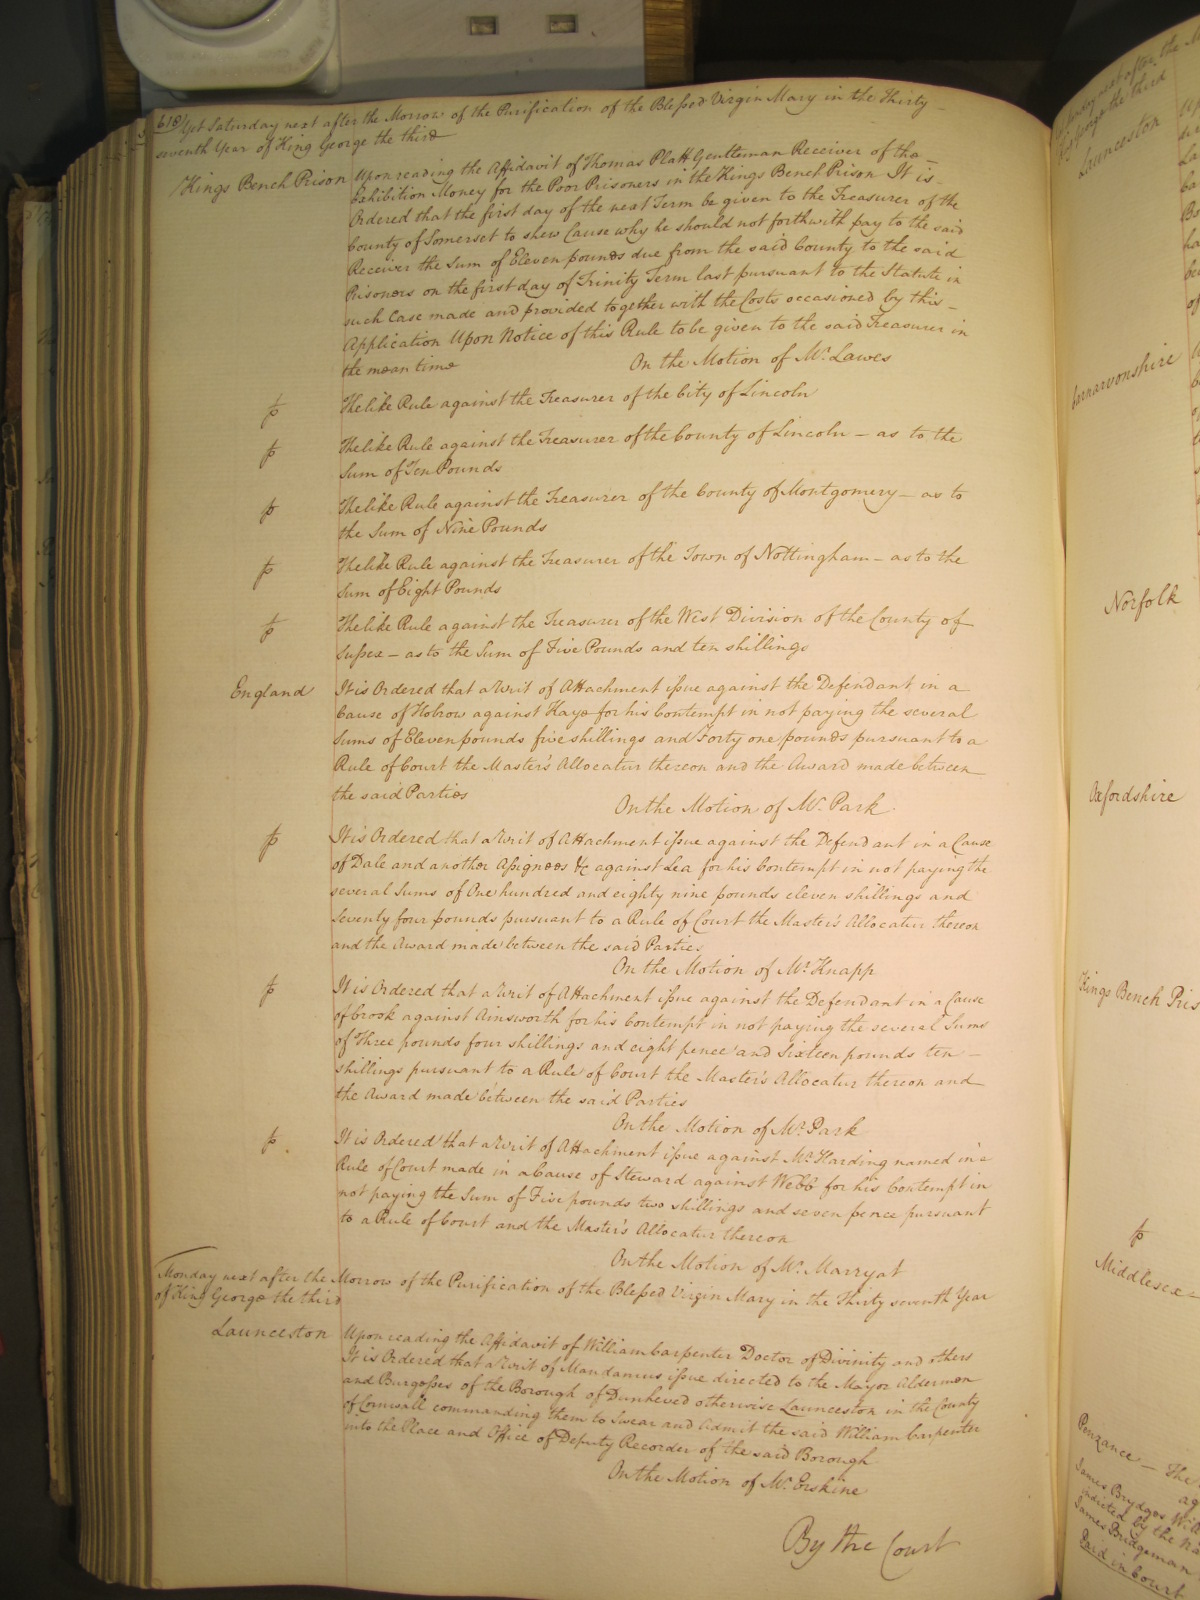 618) Yet Saturday next after the Morrow of the Purification of the Blessed Virgin Mary in the Thirty
seventh Year of King George the third
Kings Bench Prison Upon reading the Affidavit of Thomas Platt Gentleman Receiver of the
Exhibition Money for the Poor Prisoners in the Kings Bench Prison It is
Ordered that the first day of the next Term be given to the Treasurer of the
County of Somerset to shew Cause why he should not forthwith pay to the said
Receiver the Sum of Eleven pounds due from the said County to the said
Prisoners on the first day of Trinity Term last pursuant to the Statute in
such Case made and provided together with the Costs occasioned by this
Application Upon Notice of this Rule to be given to the said Treasurer in
the mean time On the Motion of Mr. Lawes
The like Rule against the Treasurer of the City of Lincoln
The like Rule against the Treasurer of the County of Lincoln – as to the
Sum of Ten Pounds
The like Rule against the Treasurer of the County of Montgomery – as to
the Sum of Nine Pounds
The like Rule against the Treasurer of the Town of Nottingham – as to the
Sum of Eight Pounds
The like Rule against the Treasurer of the West Division of the County of
Sussex – as to the Sum of Five Pounds and ten shillings
England It is Ordered that a Writ of Attachment issue against the Defendant in a
Cause of Hobrow against Kaye for his Contempt in not paying the several
Sums of Eleven pounds five shillings and Forty one pounds pursuant to a
Rule of Court the Master's Allocatur thereon and the Award made between
the said Parties On the Motion of Mr. Park
It is Ordered that a Writ of Attachment issue against the Defendant in a Cause
of Dale and another Assignees &c against Lea for his Contempt in not paying the
several Sums of One hundred and eighty nine pounds eleven shillings and
Seventy four pounds pursuant to a Rule of Court the Master's Allocatur thereon
and the Award made between the said Parties
On the Motion of Mr. Knapp
It is Ordered that a Writ of Attachment issue against the Defendant in a Cause
of Crook against Ainsworth for his Contempt in not paying the several Sums
of Three pounds four shillings and eight pence and Sixteen pounds ten
shillings pursuant to a Rule of Court the Master's Allocatur thereon and
the Award made between the said Parties
On the Motion of Mr. Park
It is Ordered that a Writ of Attachment issue against Mr. Harding named in a
Rule of Court made in a Cause of Steward against Webb for his Contempt in
not paying the Sum of Five pounds two shillings and seven pence pursuant
to a Rule of Court and the Master's Allocatur thereon
On the Motion of Mr. Marryat
Monday next after the Morrow of the Purification of the Blessed Virgin Mary in the Thirty seventh Year
of King George the third
Launceston Upon reading the Affidavit of William Carpenter Doctor of Divinity and others
It is Ordered that a Writ of Mandamus issue directed to the Mayor Aldermen
and Burgesses of the Borough of Dunheved otherwise Launceston in the County
of Cornwall commanding them to Swear and Admit the said William Carpenter
into the Place and Office of Deputy Recorder of the said Borough
On the Motion of Mr. Erskine
By the Court
Launceston
Carnarvonshire
Norfolk
Oxfordshire
Kings Bench Pris
Middlesex
Penzance – The
James Brydges Will
indicted by the Na
James Bridgeman
Paid in Court